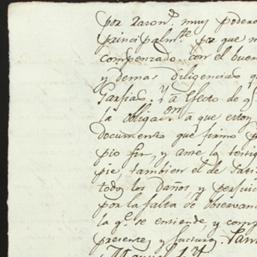 por razon.s muy poderos
principalm.te por que n
compensado con el buen
y demas diligencias q
Garfias. Y a efecto de q
la obligac.on a que estoy
documento que firmo p
pio fin, y ante la testig
pie, tambien el de
todos los daños y perjuic
por la falta de observan
la q.e se entiende, y comp
presentes y futuros.